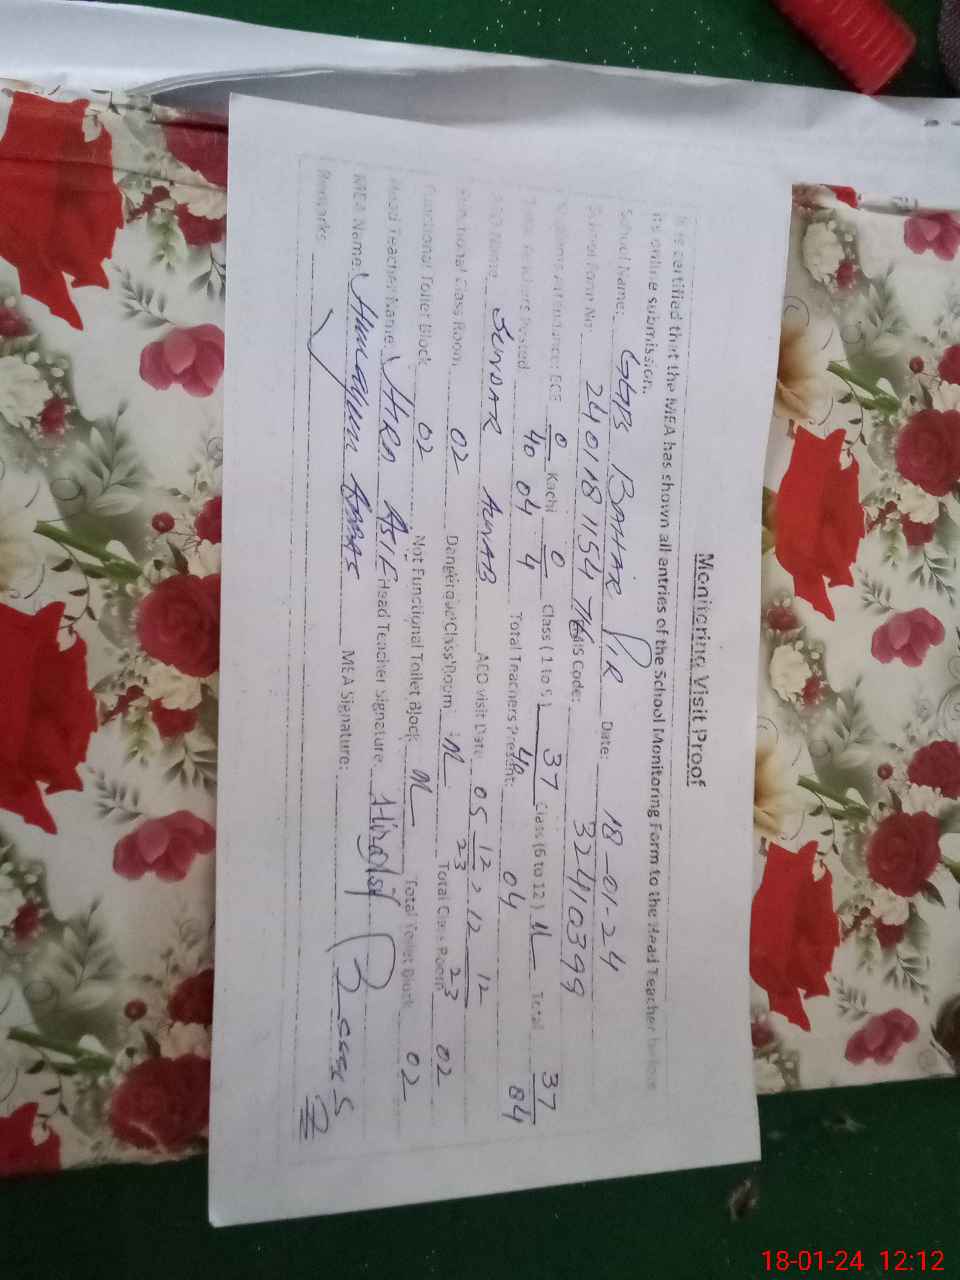 Monitoring Visit Proof
It is certified that the MEA has shown all entries of the School Monitoring Form to the Head Teacher before
its online submission.
School Name: GGPS Date: 18-01-24
School Form No: 2401181154 Code: 32410399
Students Attendance: ECE 0/40 Kachi 0/04 Class (1 to 5) 37/40 Class (6 to 12) Total 37/84
Total Teachers Posted 4 Total Teachers Present: 04
SUNDAR AEO visit Date 05 12/23 , 12 12/23
Functional Class Room 02 Dangerous Class Room Total Class Room 02
Functional Toilet Block 02 Not Functional Toilet Block Total Toilet Block 02
Head Teacher Name HIRA ASIF Head Teacher Signature Hira Asif
MEA Name HUMAYUN ABBAS MEA Signature:
Remarks
18-01-24 12:12